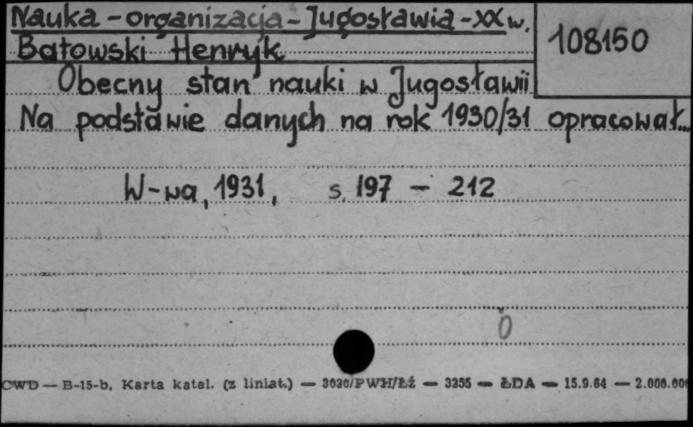 Nauka - organizacja - Jugosławia - XX w.
108150
Batowski Henryk
Obecny stan nauki w Jugosławii
Na podstawie danych na rok 1930/31 opracował...
W-wa, 1931, s. 197 - 212
0
CWD — B-15-b, Karta katal. (z liniat.) — 3030/PWH/Łź — 3255 — ŁDA — 15.9.64 — 2.000.000